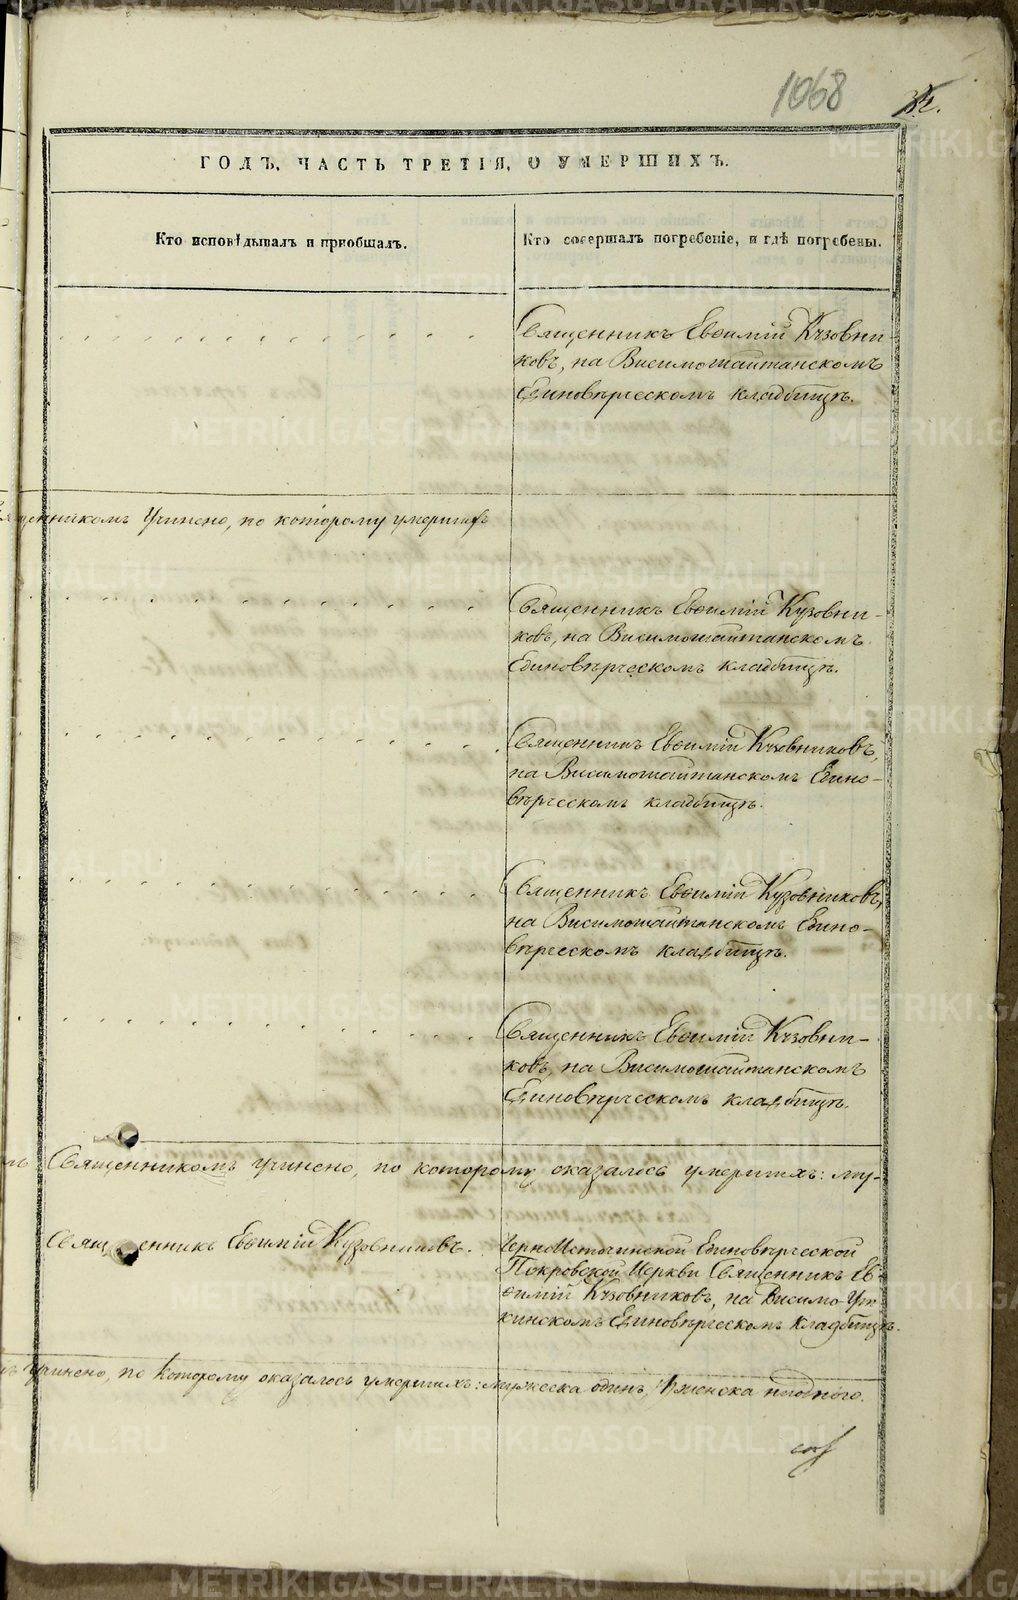 1068
ГОДЪ, ЧАСТЬ ТРЕТІЯ, О УМЕРШИХЪ.
Кто исповѣдывалъ и пріобщалъ.
Кто совершалъ погребеніе, и гдѣ погребены.
Священникъ Евѳимій Кузовни-
ковъ, на Висимошайтанскомъ
Единовѣрческомъ кладбищѣ.
священникомъ учинено, по которому умершихъ
Священникъ Евѳимій Кузовни-
ковъ, на Висимошайтанскомъ
Единовѣрческомъ кладбищѣ.
Священникъ Евѳимій Кузовниковъ,
на Висимошайтанскомъ Едино-
вѣрческомъ кладбищѣ.
Священникъ Евѳимій Кузовниковъ,
на Висимошайтанскомъ Едино-
вѣрческомъ кладбищѣ.
Священникъ Евѳимій Кузовни-
ковъ, на Висимошайтанскомъ
Единовѣрческомъ кладбищѣ.
мъ Священникомъ учинено, по которому оказалось умершихъ: му-
Священникъ Евѳимій Кузовниковъ.
Черноисточинской Единовѣрческой
Покровской Церкви Священникъ Ев-
ѳимій Кузовниковъ, на Висимо-Ут-
кинскомъ Единовѣрческомъ кладбищѣ.
ъ учинено, по которому оказалось умершихъ: мужеска одинъ, женска ниодного.
METRIKI.GASO-URAL.RU